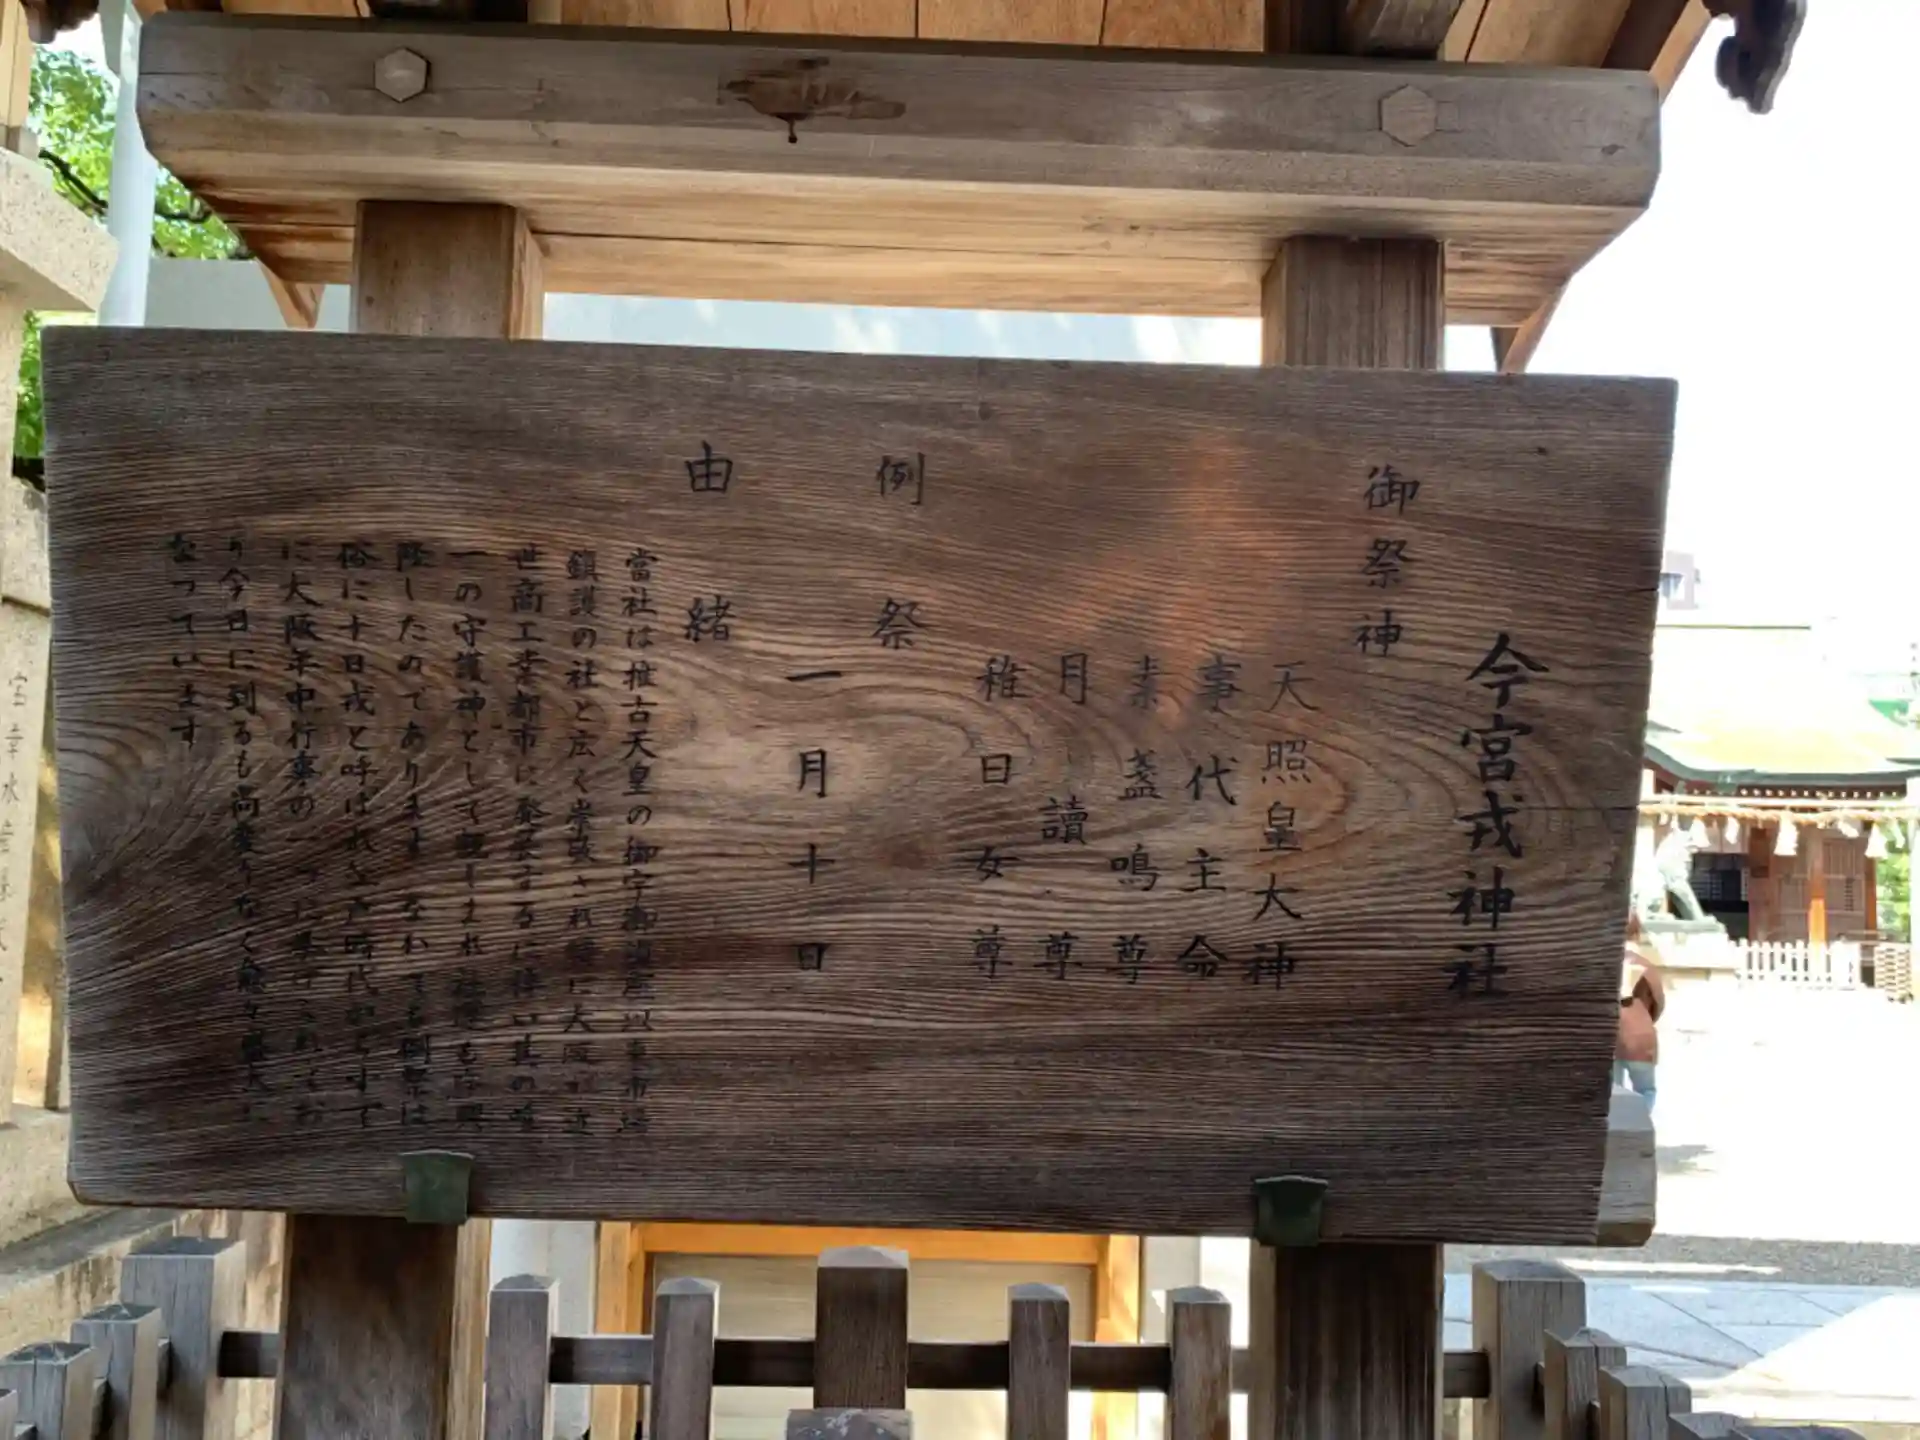 今宮戎神社
御祭神
天照皇大神
事代主命
素盞鳴尊
月讀尊
稚日女尊
例祭
一月十日
由緒
當社は推古天皇の御宇御鎮座以来市経
鎮護の社と広く崇敬され特に大阪が近
世商工業都市に発展するに伴い其の唯
一の守護神として親しまれ社運も亦興
隆したのであります なかでも例祭は
俗に十日戎と呼ばれ江戸時代からすで
に大阪年中行事の一つに挙げられてお
り今日に到るも尚変りなく愈々盛大に
なっています